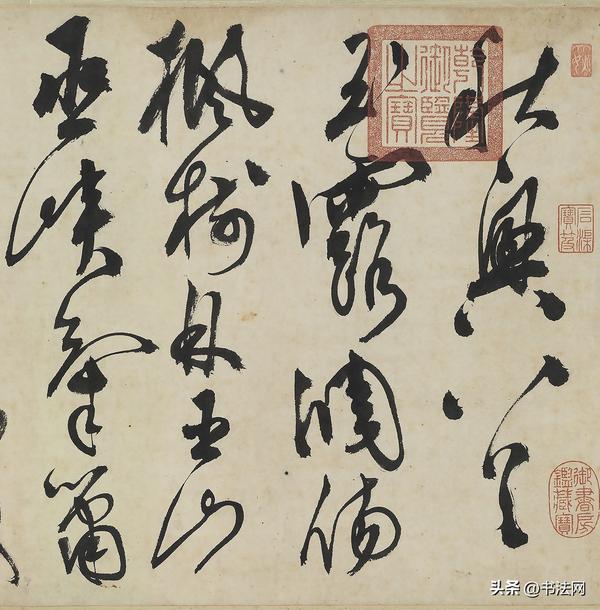 秋興八首
玉露凋傷
楓樹林巫山
巫峽氣蕭
乾隆御覽之寶
石渠寶笈
御書房鑑藏寶
头条 @书法网